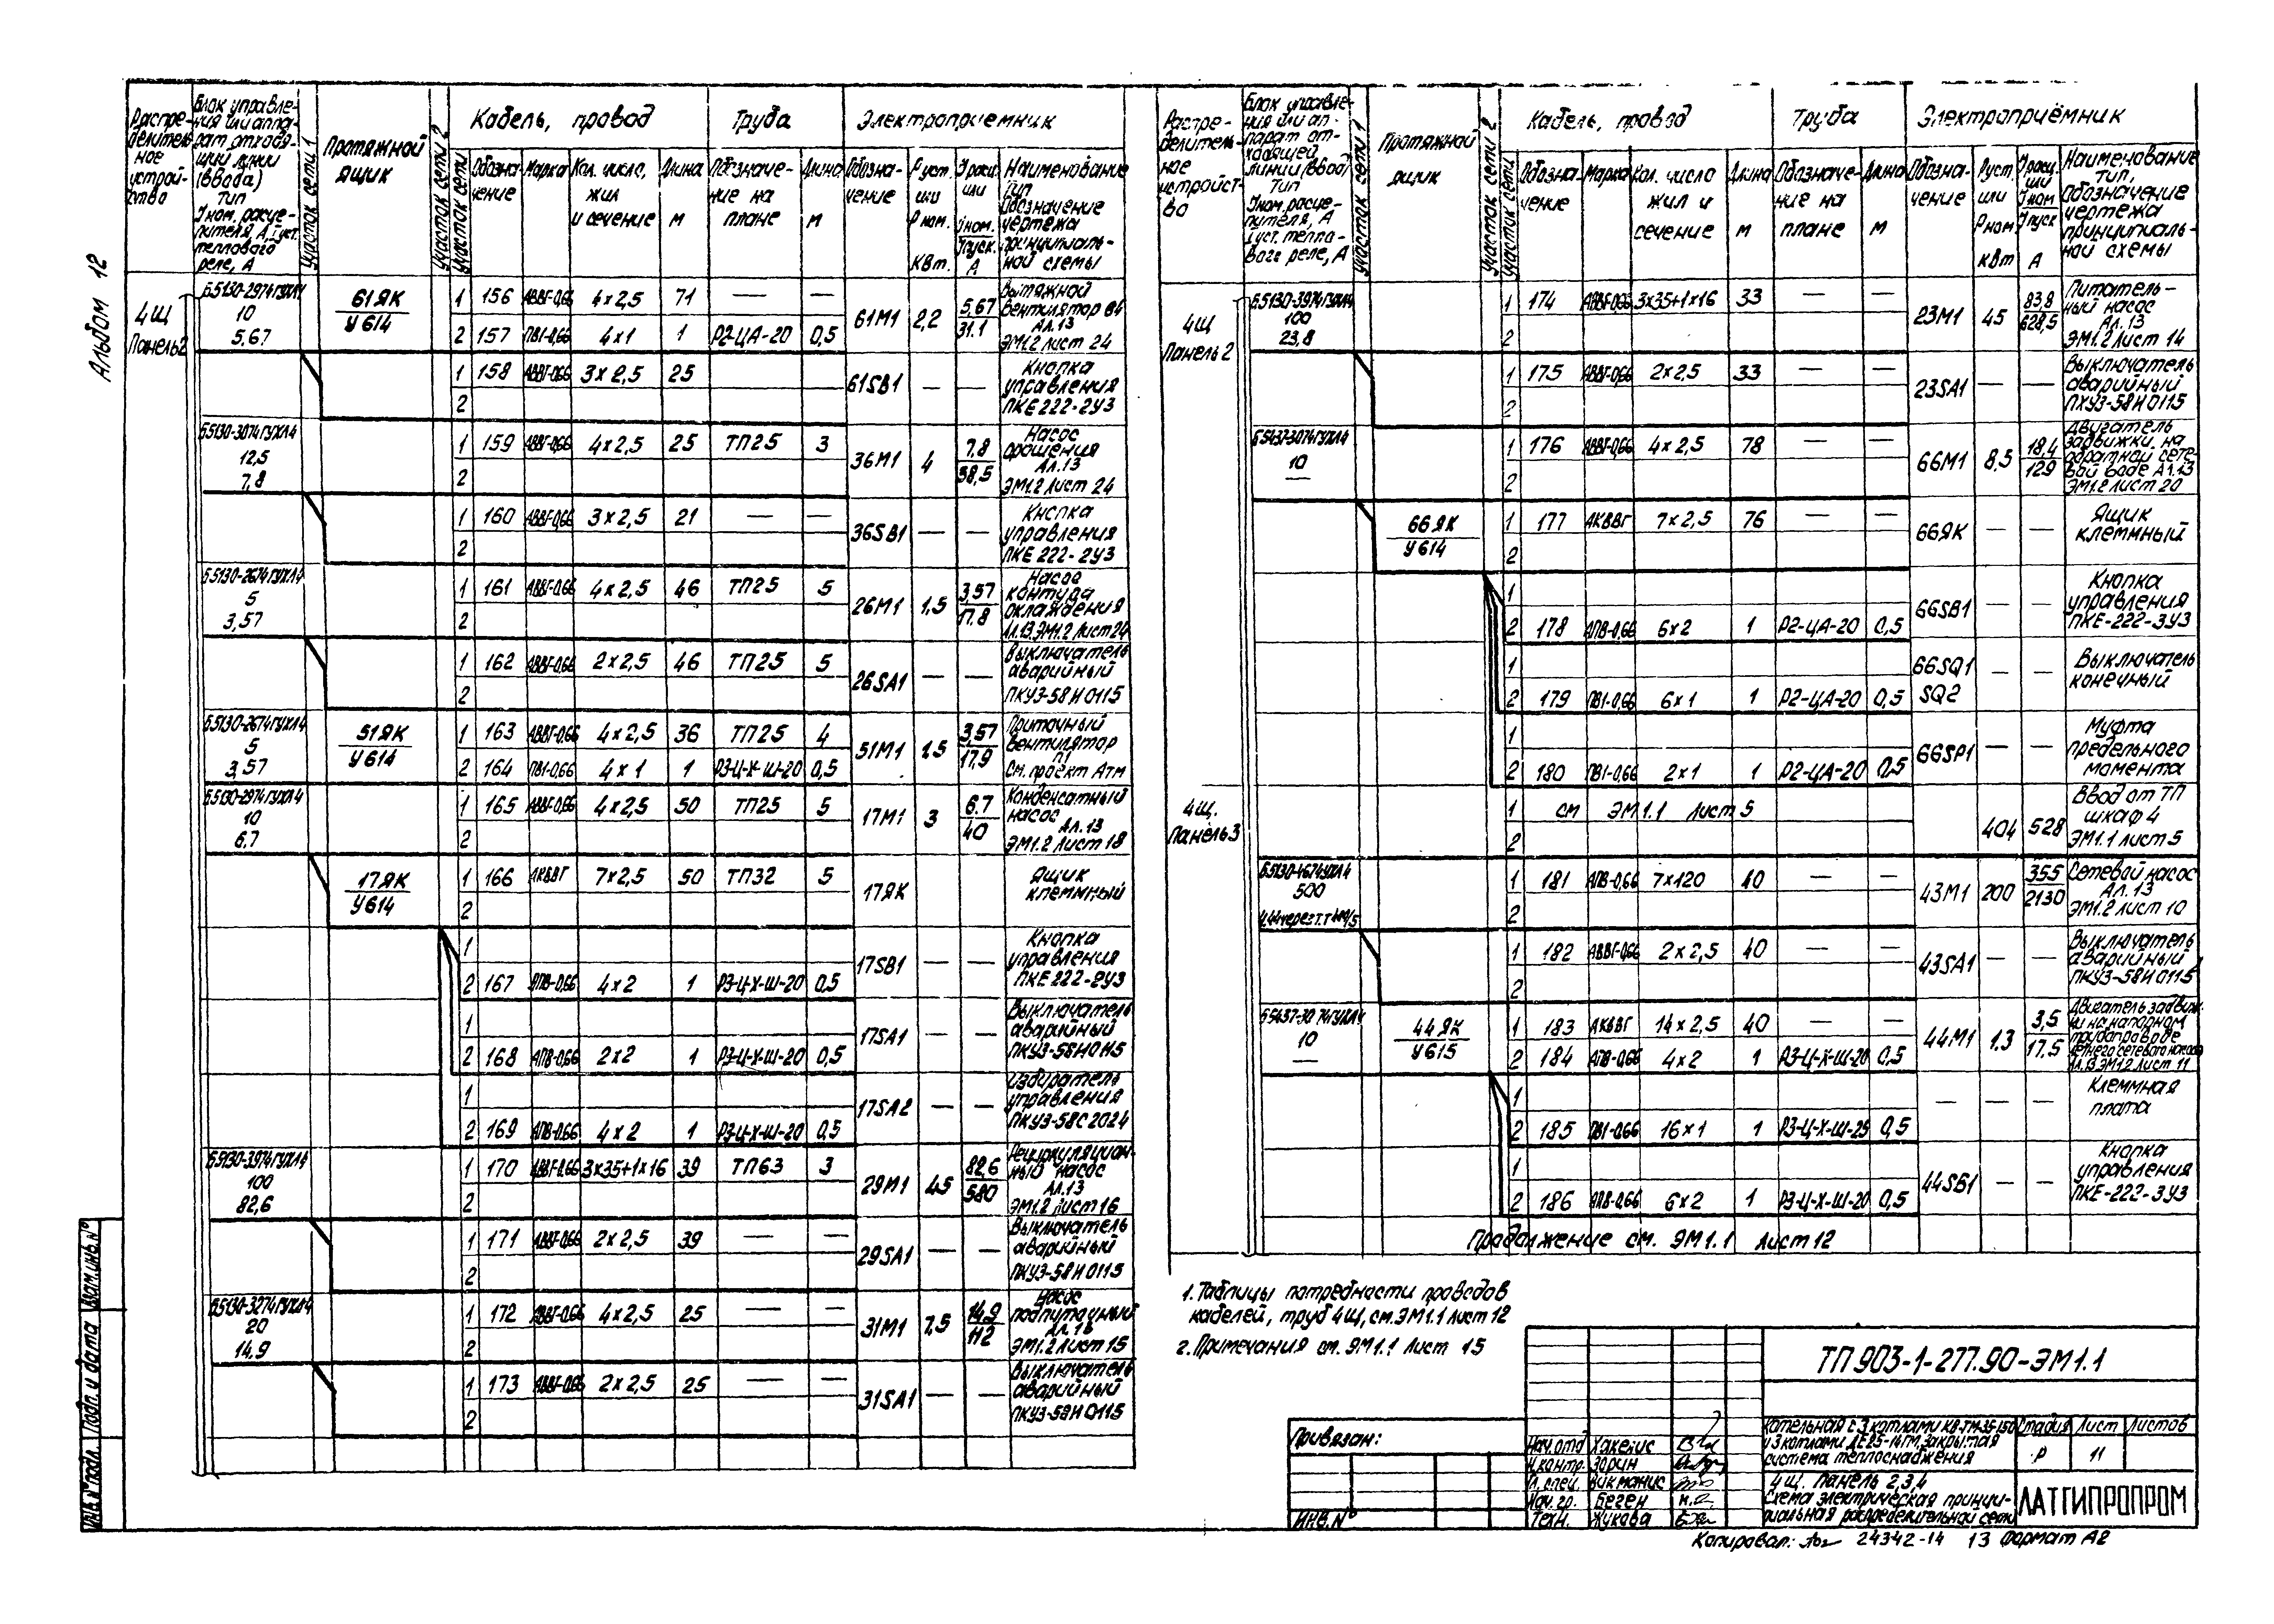 Альбом 12
Распре-
делитель-
ное
устрой-
ство
Блок управле-
ния или аппа-
рат отходя-
щий линии
(ввода)
тип
Iном. расце-
пителя, А, Iуст.
теплового
реле, А
Участок сети 1
Протяжной
ящик
Участок сети 2
Участок сети
Кабель, провод
Труба
Электроприемник
Обозна-
чение
Марка
Кол. число,
жил
и сечение
Длина
м
Обозначе-
ние на
плане
Длина
м
Обозна-
чение
Р уст.
или
Р ном.
кВт.
Iрасч.
или
Iном.
Iпуск.
А
Наименование
тип
Обозначение
чертежа
принципиаль-
ной схемы
4Щ
Панель2
Б5130-2974ГУХЛ4
10
5,67
61ЯК
У614
1 156 АВВГ-0,66 4х2,5 71 — —
2 157 ПВ1-0,66 4х1 1 Р2-ЦА-20 0,5
61М1 2,2 5,67
31.1
Вытяжной
вентилятор В4
Ал.13
ЭМ1.2 Лист 24
1 158 АВВГ-0,66 3х2,5 25
2
61SB1 — —
Кнопка
управления
ПКЕ 222-2У3
Б5130-3074ГУХЛ4
12,5
7,8
1 159 АВВГ-0,66 4х2,5 25 ТП25 3
2
36М1 4 7,8
38,5
Насос
орошения
Ал.13
ЭМ1.2 Лист 24
1 160 АВВГ-0,66 3х2,5 21 — —
2
36SB1 — —
Кнопка
управления
ПКЕ 222-2У3
Б5130-2674ГУХЛ4
5
3,57
1 161 АВВГ-0,66 4х2,5 46 ТП25 5
2
26М1 1,5 3,57
17.8
Насос
контура
охлаждения
Ал.13,ЭМ1.2 Лист24
1 162 АВВГ-0,66 2х2,5 46 ТП25 5
2
26SA1 — —
Выключатель
аварийный
ПКУ3-58И0115
Б5130-2674ГУХЛ4
5
3,57
51ЯК
У614
1 163 АВВГ-0,66 4х2,5 36 ТП25 4
2 164 ПВ1-0,66 4х1 1 Р3-Ц-Х-Ш-20 0,5
51М1 1.5 3,57
17,9
Приточный
вентилятор
П1
См. проект Атм
Б5130-2974ГУХЛ4
10
6,7
1 165 АВВГ-0,66 4х2,5 50 ТП25 5
2
17М1 3 6.7
40
Конденсатный
насос
Ал.13
ЭМ1.2 Лист 18
17ЯК
У614
1 166 АКВВГ 7х2,5 50 ТП32 5
2
17ЯК
Ящик
клеммный
1
2 167 АПВ-0,66 4х2 1 Р3-Ц-Х-Ш-20 0,5
17SB1
Кнопка
управления
ПКЕ 222-2У3
1
2 168 АПВ-0,66 2х2 1 Р3-Ц-Х-Ш-20 0,5
17SA1 — —
Выключатель
аварийный
ПКУ3-58И0115
1
2 169 АПВ-0,66 4х2 1 Р3-Ц-Х-Ш-20 0,5
17SA2 — —
Избиратель
управления
ПКУ3-58С2024
Б5130-3974ГУХЛ4
100
82,6
1 170 АВВГ-0,66 3х35+1х16 39 ТП63 3
2
29М1 45 82,6
580
Рециркуляцион-
ный насос
Ал.13
ЭМ1.2 Лист16
1 171 АВВГ-0,66 2х2,5 39 — —
2
29SA1 — —
Выключатель
аварийный
ПКУ3-58И0115
Б5130-3274ГУХЛ4
20
14.9
1 172 АВВГ-0,66 4х2,5 25 — —
2
31М1 7,5 14.9
112
Насос
подпиточный
Ал.13
ЭМ1.2 Лист15
1 173 АВВГ-0,66 2х2,5 25 — —
2
31SA1 — —
Выключатель
аварийный
ПКУ3-58И0115
Распре-
делитель-
ное
устройст-
во
Блок управле-
ния или ап-
парат от-
ходящей
линии (ввод)
Тип
Iном. расце-
пителя, А
Iуст. тепло-
вого реле, А
Участок сети 1
Протяжной
ящик
Участок сети 2
Участок сети
Кабель, провод
Труба
Электроприёмник
Обозна-
чение
Марка
Кол. число
жил и
сечение
Длина
м
Обозначе-
ние на
плане
Длина
м
Обозна-
чение
Руст.
или
Рном
кВт
Iрасц.
или
Iном
Iпуск
А
Наименование
тип,
обозначение
чертежа
принципиаль-
ной схемы
4Щ
Панель 2
Б5130-3974ГУХЛ4
100
23,8
1 174 АВВГ-0,66 3х35+1х16 33 — —
2
23М1 45 83,8
628,5
Питатель-
ный насос
Ал.13
ЭМ1.2 Лист 14
1 175 АВВГ-0,66 2х2,5 33 — —
2
23SA1 — —
Выключатель
аварийный
ПКУ3-58И0115
Б5437-3074ГУХЛ4
10
—
1 176 АВВГ-0,66 4х2,5 78 — —
2
66М1 8,5 18,4
129
Двигатель
задвижки на
обратной сете-
вой воде Ал.13
ЭМ1.2 Лист 20
66ЯК
У614
1 177 АКВВГ 7х2,5 76 — —
2
66ЯК — —
Ящик
клеммный
1
2 178 АПВ-0,66 6х2 1 Р2-ЦА-20 0,5
66SB1 — —
Кнопка
управления
ПКЕ-222-3У3
1
2 179 ПВ1-0,66 6х1 1 Р2-ЦА-20 0,5
66SQ1
SQ2
— —
Выключатель
конечный
1
2 180 ПВ1-0,66 2х1 1 Р2-ЦА-20 0,5
66SP1 — —
Муфта
предельного
момента
4Щ.
Панель3
1 см ЭМ1.1 Лист 5
2
404 528
Ввод от ТП
шкаф 4
ЭМ1.1 Лист 5
Б5130-4674УХЛ4
500
1 181 АПВ-0,66 7х120 40 — —
2
43М1 200 355
2130
Сетевой насос
Ал.13
ЭМ1.2 Лист 10
1 182 АВВГ-0,66 2х2,5 40 — —
2
43SA1 — —
Выключатель
аварийный
ПКУ3-58И0115
Б5437-3074ГУХЛ4
10
—
44ЯК
У615
1 183 АКВВГ 14х2,5 40 — —
2 184 АПВ-0,66 4х2 1 Р3-Ц-Х-Ш-20 0,5
44М1 1.3 3,5
17.5
Двигатель задвиж-
ки на напорном
трубопроводе
летнего сетевого насоса
Ал.13 ЭМ1.2 Лист 11
1
2 185 ПВ1-0,66 16х1 1 Р3-Ц-Х-Ш-25 0,5
— — —
Клеммная
плата
1
2 186 АПВ-0,66 6х2 1 Р3-Ц-Х-Ш-20 0,5
44SB1 — —
Кнопка
управления
ПКЕ-222-3У3
Продолжение см. ЭМ1.1 Лист 12
1. Таблицы потребности проводов
кабелей, труб 4Щ, см. ЭМ1.1 Лист 12
2. Примечания см. ЭМ1.1 Лист 15
ТП 903-1-277.90-ЭМ1.1
Котельная с 3 котлами КВ-ТМ-35-150
и 3 котлами ДЕ25-14ГМ, Закрытая
система теплоснабжения
Стадия Лист Листов
Р 11
4Щ. Панель 2,3,4
Схема электрическая принци-
пиальная распределительной сети
ЛАТГИПРОПРОМ
Привязан:
ИНВ.N°
Нач.отд Хакелис
Н.контр. Зорин
Гл. спец. Викманис
Нач. гр. Беген
Техн. Жукова
Взам.инв.N°
Подп. и дата
Инв.N°подл.
Копировал: 24342-14 13 Формат А2